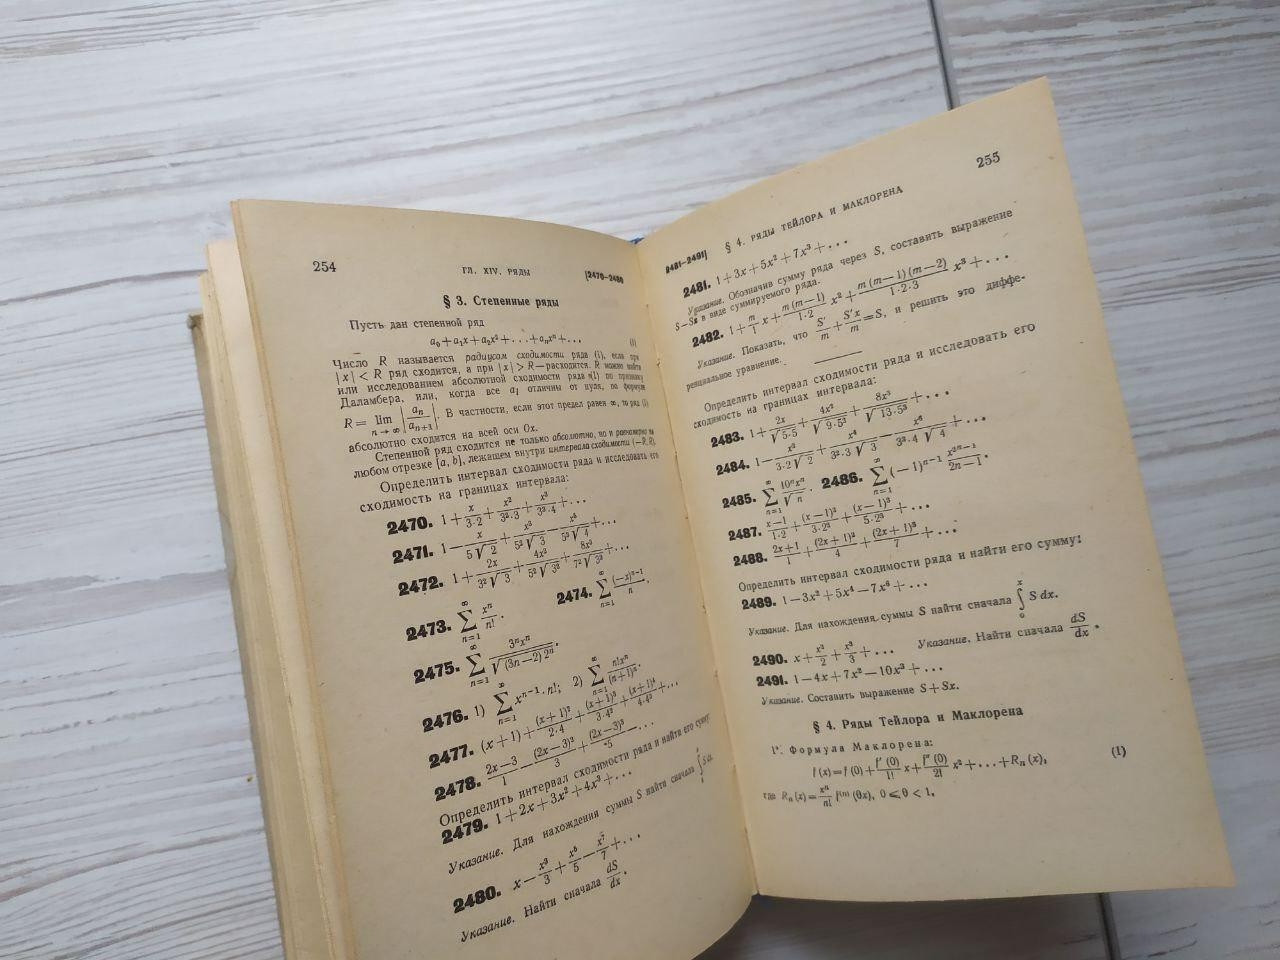 254
ГЛ. XIV. РЯДЫ
[2470—2480
§ 3. Степенные ряды
Пусть дан степенной ряд
a₀+a₁x+a₂x²+...+aₙxⁿ+... (1)
Число R называется радиусом сходимости ряда (1), если при
|x| < R ряд сходится, а при |x| > R—расходится. R можно найти
или исследованием абсолютной сходимости ряда (1) по признаку
Даламбера, или, когда все aᵢ отличны от нуля, по формуле
R = lim n→∞ |aₙ/aₙ₊₁|. В частности, если этот предел равен ∞, то ряд (1)
абсолютно сходится на всей оси Ox.
Степенной ряд сходится не только абсолютно, но и равномерно на
любом отрезке [a, b], лежащем внутри интервала сходимости (—R, R).
Определить интервал сходимости ряда и исследовать его
сходимость на границах интервала:
2470. 1+x/(3·2)+x²/(3²·3)+x³/(3³·4)+...
2471. 1—x/(5√2)+x²/(5²√3)—x³/(5³√4)+...
2472. 1+2x/(3²√3)+4x²/(5²√3²)+8x³/(7²√3³)+...
2473. ∑ₙ₌₁^∞ xⁿ/n!. 2474. ∑ₙ₌₁^∞ (—x)ⁿ⁻¹/n.
2475. ∑ₙ₌₁^∞ 3ⁿxⁿ/√((3n—2)2ⁿ).
2476. 1) ∑ₙ₌₁^∞ xⁿ⁻¹·n!; 2) ∑ₙ₌₁^∞ n!xⁿ/(n+1)ⁿ.
2477. (x+1)+(x+1)²/(2·4)+(x+1)³/(3·4²)+(x+1)⁴/(4·4³)+...
2478. (2x—3)/1—(2x—3)²/3+(2x—3)³/5—...
Определить интервал сходимости ряда и найти его сумму
2479. 1+2x+3x²+4x³+...
Указание. Для нахождения суммы S найти сначала ∫ S dx.
2480. x—x³/3+x⁵/5—x⁷/7+...
Указание. Найти сначала dS/dx.
2481—2491] § 4. РЯДЫ ТЕЙЛОРА И МАКЛОРЕНА 255
2481. 1+3x+5x²+7x³+...
Указание. Обозначив сумму ряда через S, составить выражение
S—Sx в виде суммируемого ряда.
2482. 1+m/1 x+m(m—1)/(1·2) x²+m(m—1)(m—2)/(1·2·3) x³+...
Указание. Показать, что S'/m+S'x/m=S, и решить это диффе-
ренциальное уравнение.
Определить интервал сходимости ряда и исследовать его
сходимость на границах интервала:
2483. 1+2x/√(5·5)+4x²/√(9·5²)+8x³/√(13·5³)+...
2484. 1—x²/(3·2√2)+x⁴/(3²·3√3)—x⁶/(3³·4√4)+...
2485. ∑ₙ₌₁^∞ 10ⁿxⁿ/√n. 2486. ∑ₙ₌₁^∞ (—1)ⁿ⁻¹ x²ⁿ⁻¹/(2n—1).
2487. (x—1)/(1·2)+(x—1)²/(3·2²)+(x—1)³/(5·2³)+...
2488. (2x+1)/1+(2x+1)²/4+(2x+1)³/7+...
Определить интервал сходимости ряда и найти его сумму:
2489. 1—3x²+5x⁴—7x⁶+...
Указание. Для нахождения суммы S найти сначала ∫₀ˣ S dx.
2490. x+x²/2+x³/3+... Указание. Найти сначала dS/dx.
2491. 1—4x+7x²—10x³+...
Указание. Составить выражение S+Sx.
§ 4. Ряды Тейлора и Маклорена
1°. Формула Маклорена:
f(x)=f(0)+f'(0)/1! x+f''(0)/2! x²+...+Rₙ(x), (1)
где Rₙ(x)=xⁿ/n! f⁽ⁿ⁾(θx), 0⩽θ<1.